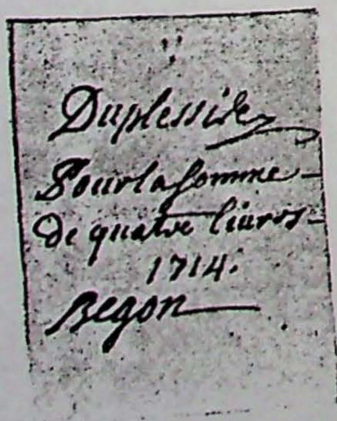 Duplessis
Pour la somme
de quatre livres
1714.
Begon